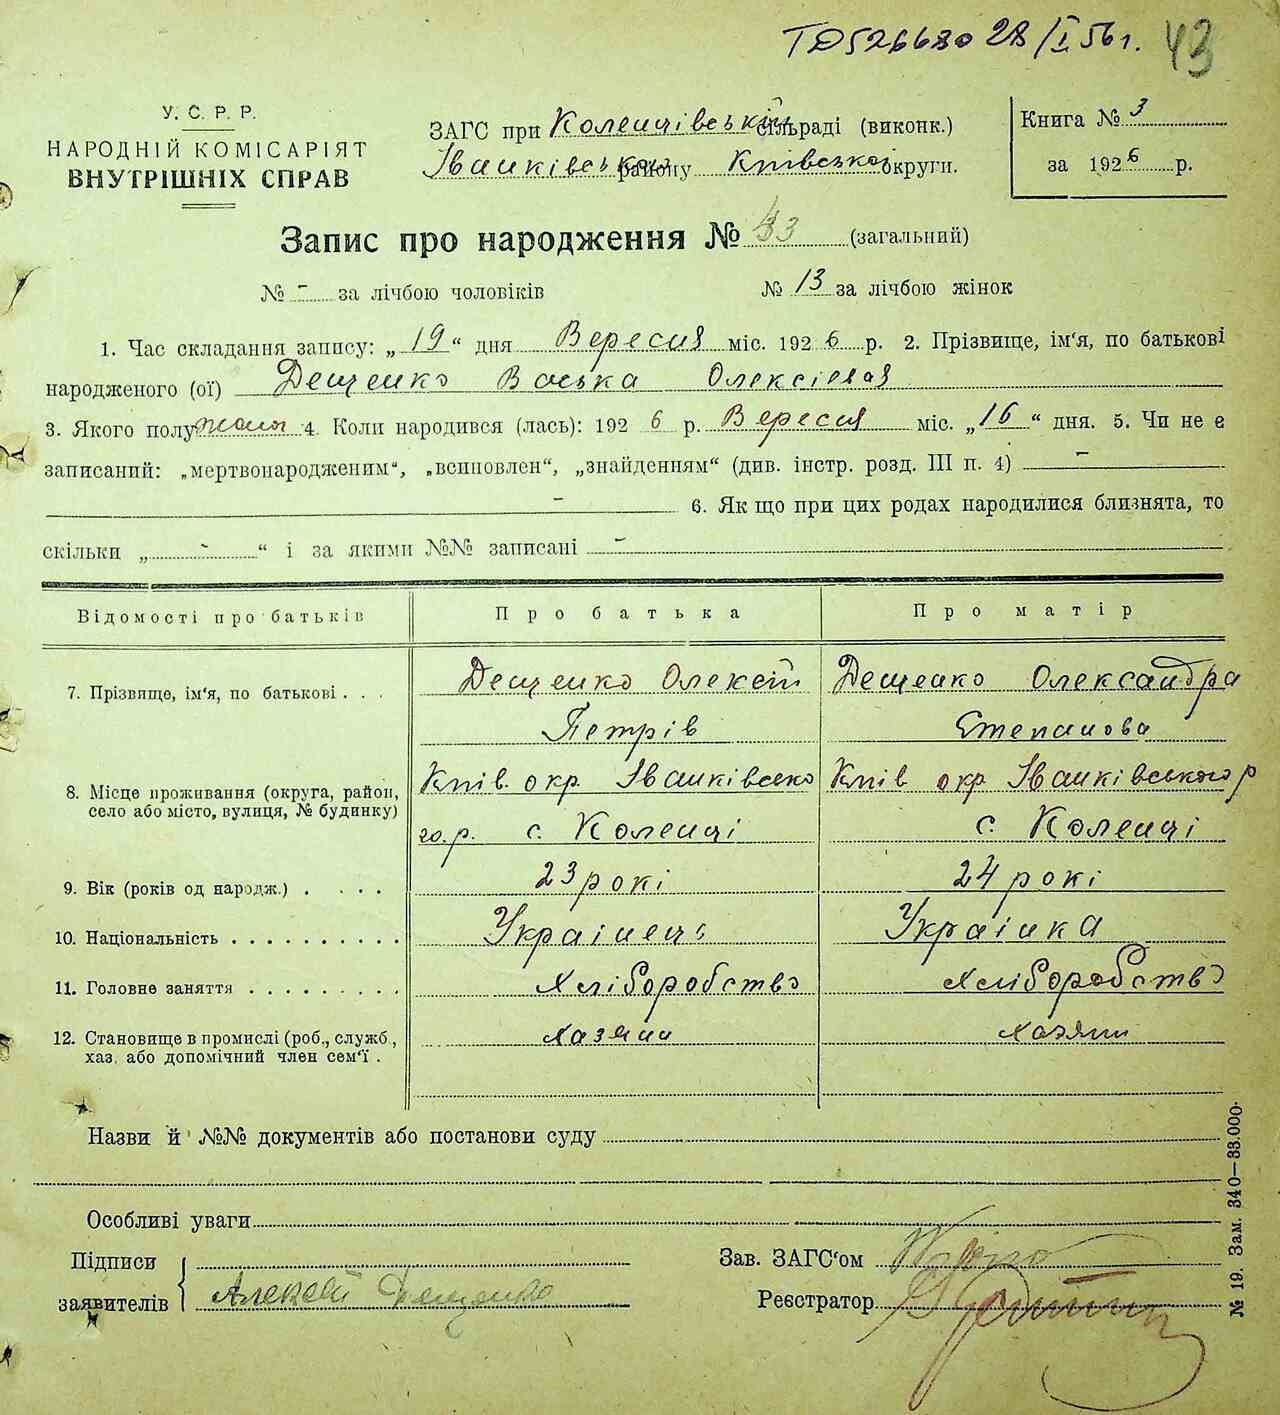 ТД526680 28/I 56 г. 43
У. С. Р. Р.
НАРОДНІЙ КОМІСАРІЯТ
ВНУТРІШНІХ СПРАВ
ЗАГС при Коленцівській сільраді (виконк.)
Іванківськ району Київської округи.
Книга № 3
за 1926 р.
Запис про народження № 33 (загальний)
№ - за лічбою чоловіків № 13 за лічбою жінок
1. Час складання запису: „19“ дня Вересня міс. 1926 р. 2. Прізвище, ім'я, по батькові
народженого (ої) Дещенко Васька Олексієвая
3. Якого полу жоноч 4. Коли народився (лась): 1926 р. Вересня міс. „16“ дня. 5. Чи не є
записаний: „мертвонародженим“, „всиновлен“, „знайденням“ (див. інстр. розд. III п. 4) -
- 6. Як що при цих родах народилися близнята, то
скільки „ - “ і за якими №№ записані -
Відомості про батьків Про батька Про матір
7. Прізвище, ім'я, по батькові . . . Дещенко Олексій Дещенко Олександра
Петрів Степанова
8. Місце проживання (округа, район, село або місто, вулиця, № будинку) Київ. окр. Іванківсько Київ окр Іванківського р
го. р. с. Коленці с. Коленці
9. Вік (років од народж.) . . . . 23 рокі 24 рокі
10. Національність . . . . . . . . . . Українець Українка
11. Головне заняття . . . . . . . . . Хліборобство Хліборобство
12. Становище в промислі (роб., служб., хаз. або допомічний член сем'ї . хазяин хазяин
Назви й №№ документів або постанови суду
Особливі уваги
Підписи Зав. ЗАГС'ом
заявителів Алексей Дещенко Реєстратор
№ 19. Зам. 340—33.000.